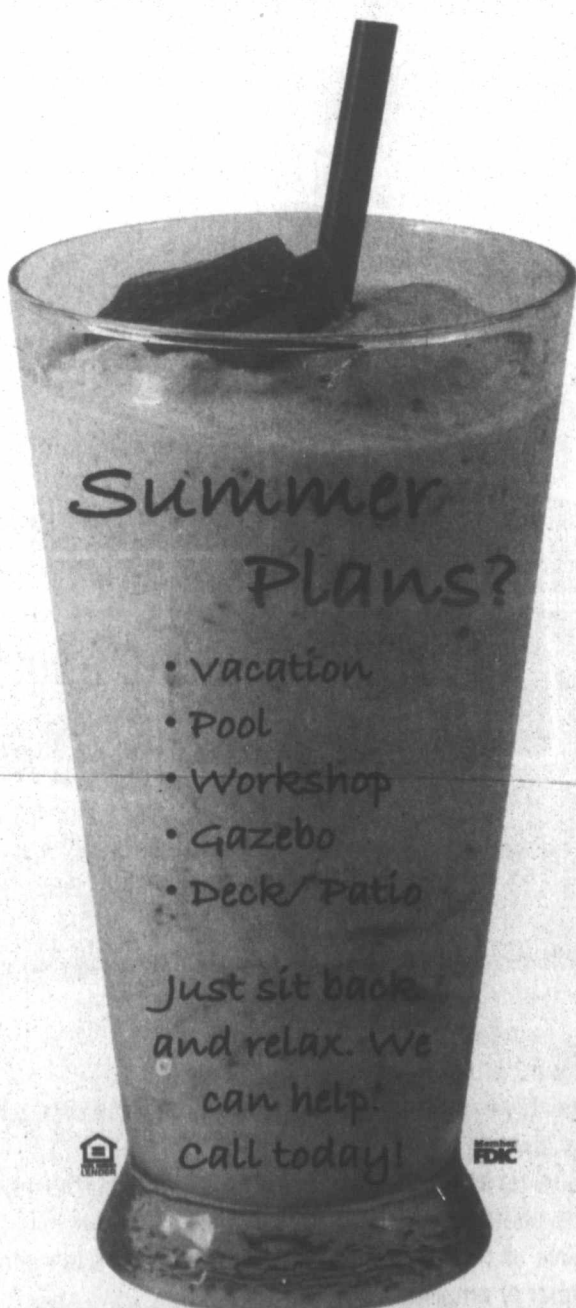 Summer
Plans?
• Vacation
• Pool
• Workshop
• Gazebo
• Deck/Patio
Just sit back
and relax. We
can help!
Call today!
LENDER
Member
FDIC